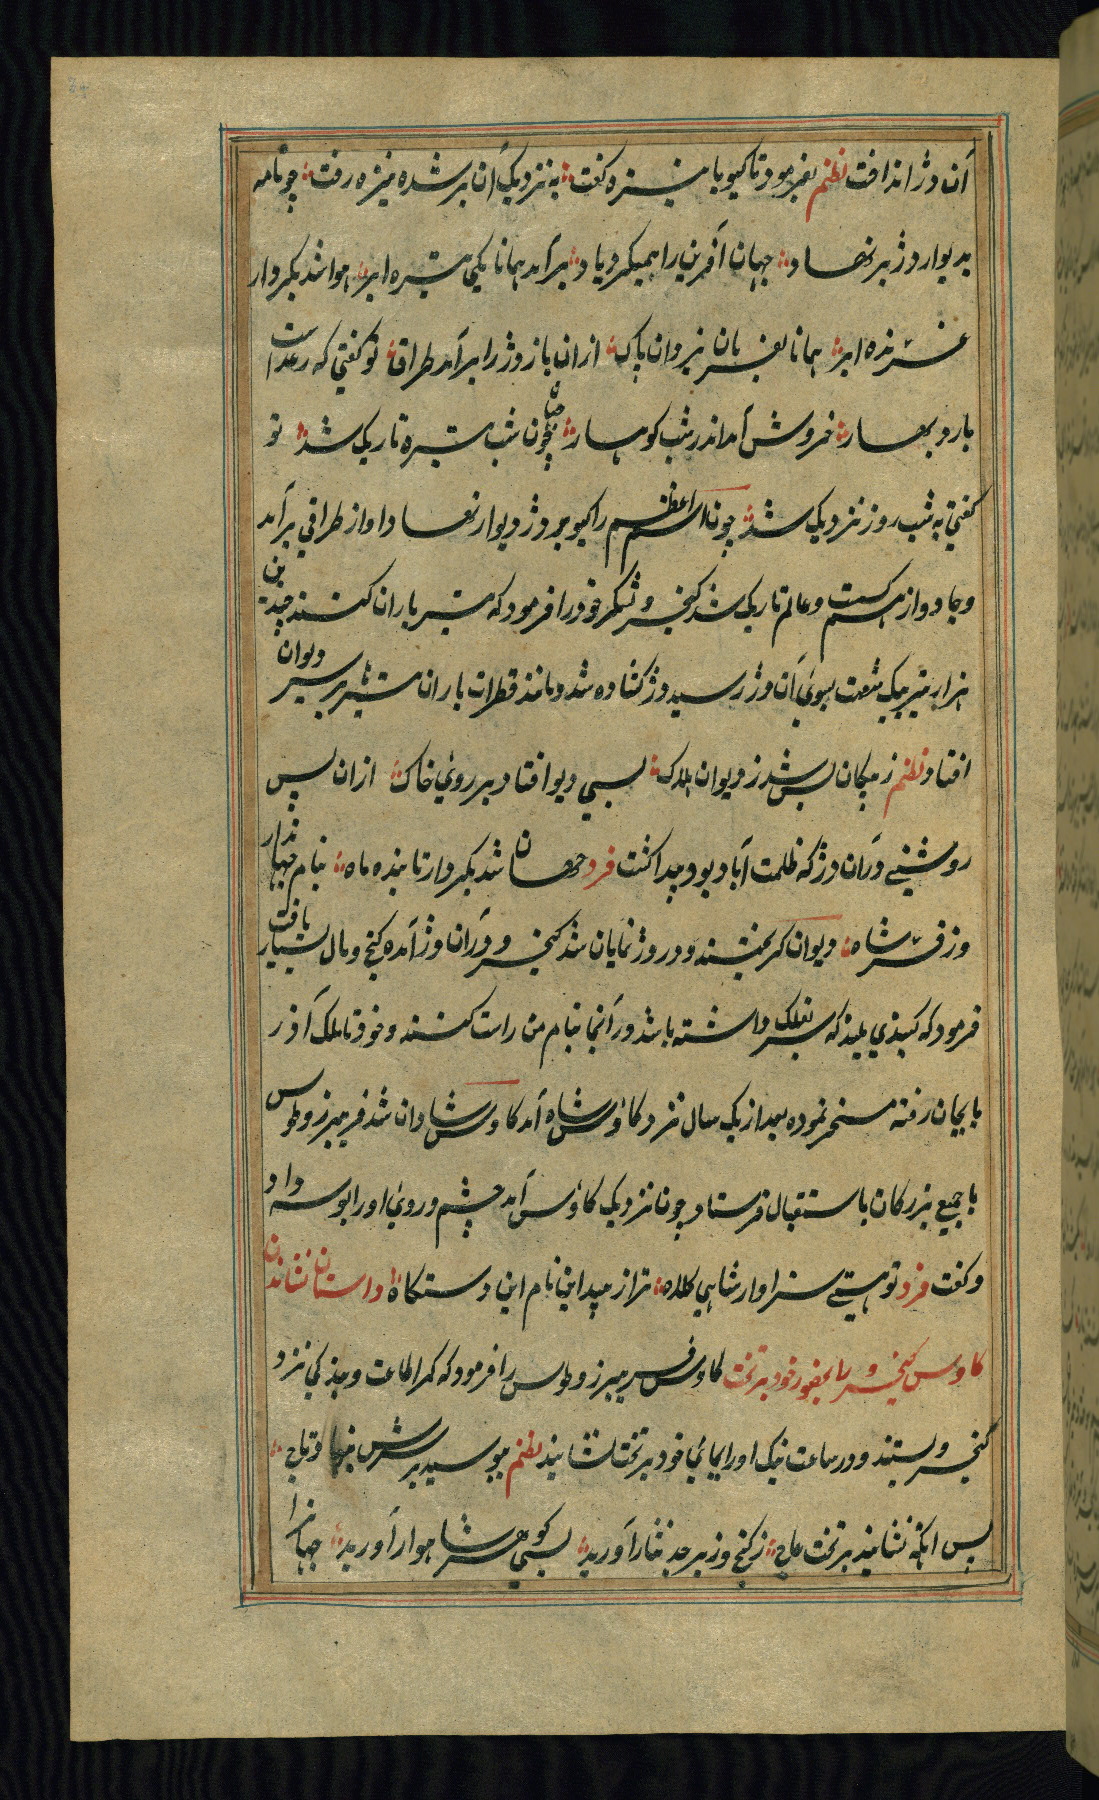 آن دژ انداخت نظم بفرمود تا گیو با نیزه گفت به نزدیک آن بر شده نیزه رفت چو نامه
بدیوار دژ بر نهاد جهان آفرین را همیکرد یاد برآمد همانا یکی تیره ابر هوا شد بکردار
غرنده ابر همانا بفرمان یزدان پاک ازان باز دژ را برآمد طراق تو گفتی که رعد است
بار و بهار خروش آمد اندر شب کوهسار جهان چون شب تیره تاریک شد تو
گفتی به شب روز نزدیک شد چون اسم اعظم را گیو بر دژ دیوار نهاد و اواز طراقی برآمد
و جادو از هم گسست و عالم تاریک شد کیخسرو لشکر خود را فرمود که تیر باران کنند چندین
هزار تیر بیک شصت بسوی آن دژ رسید دژ کشاده شد و مانند قطرات باران تیر بر سر دیوان
افتاد نظم ز پیکان بس شد ز دیوان هلاک بسی دیو افتاد بر روی خاک ازان پس
روشنی دران دژ که ظلمت آباد بود پیدا گشت فرد جهان شد بکردار تابنده ماه بنام جهاندار
وز فر شاه دیوان گریختند و در دژ نمایان شد کیخسرو دران دژ آمده گنج و مال بسیار یافت
فرمود که گنبذی بلیند که سر بفلک داشته باشد در آنجا بنام من راست کنند و خود تا ملک آذر
بایجان رفته مسخر نموده بعد از یک سال نزد کاوس شاه آمد کاوس شادان شد فریبرز و طوس
با جمیع بزرگان باستقبال فرستاد چون نزدیک کاوس آمد چشم و روی او را بوسه داد
و گفت فرد تو هستی سزاوار شاهی کلاه ترا زیبد این نام این دستگاه داستان نشاندن
کاوس کیخسرو را بحضور خود بر تخت کاوس فریبرز و طوس را فرمود که کمر اطاعت و بندگی نزد
کیخسرو بستند و در ساعت نیک او را بجای خود بر تخت نشانید نظم ببوسید بر سرش بنهاد تاج
پس انکه نشانید بر تخت عاج ز گنج وز برجد نثار آورید بسی گوهر شاهوار آورید جهانرا